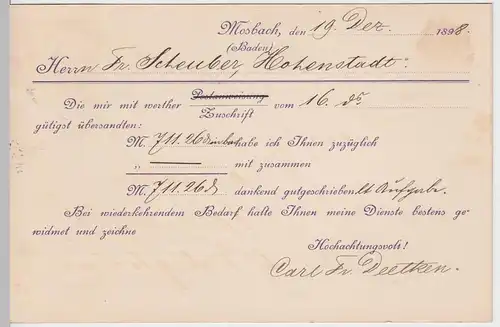 Mosbach, den 19 Dez. 1898.
(Baden)
Herrn Fr. Scheuber, Hohenstadt.
Die mir mit werther Postanweisung vom 16. ds
Zuschrift
gütigst übersandten:
M. 711.26 in bar habe ich Ihnen zuzüglich
„ mit zusammen
M. 711.26 dankend gutgeschrieben lt Aufgabe.
Bei wiederkehrendem Bedarf halte Ihnen meine Dienste bestens ge-
widmet und zeichne
Hochachtungsvoll!
Carl Fr. Deetken.